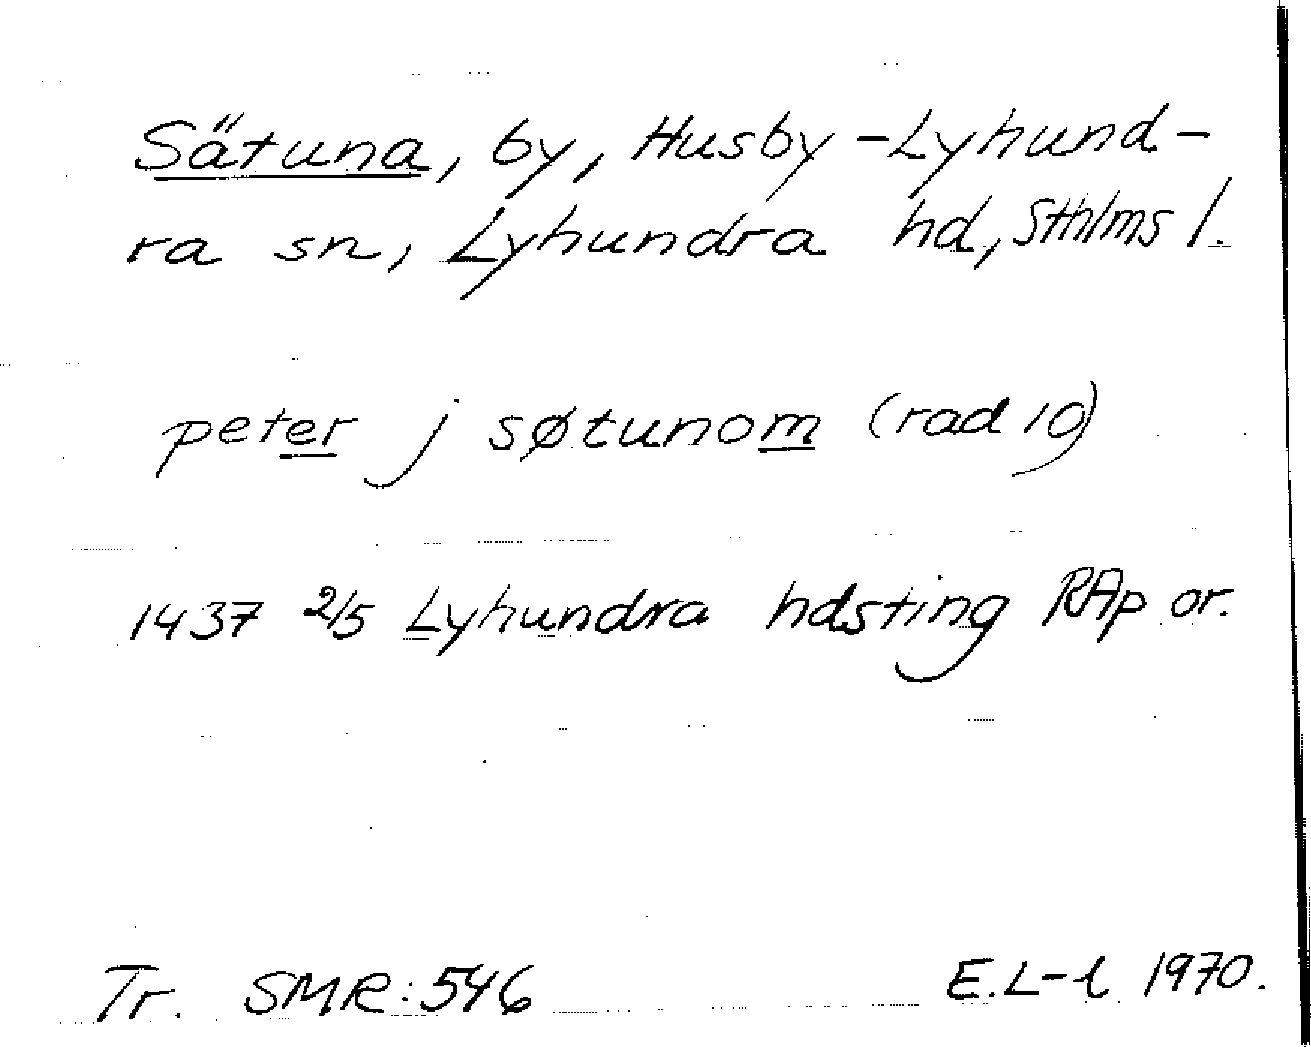 Sätuna, by, Husby-Lyhund-
ra sn, Lyhundra hd, Sthlms l.
peter j søtunom (rad 10)
1437 2/5 Lyhundra hdsting RAp or.
Tr. SMR: 546 E.L-l 1970.